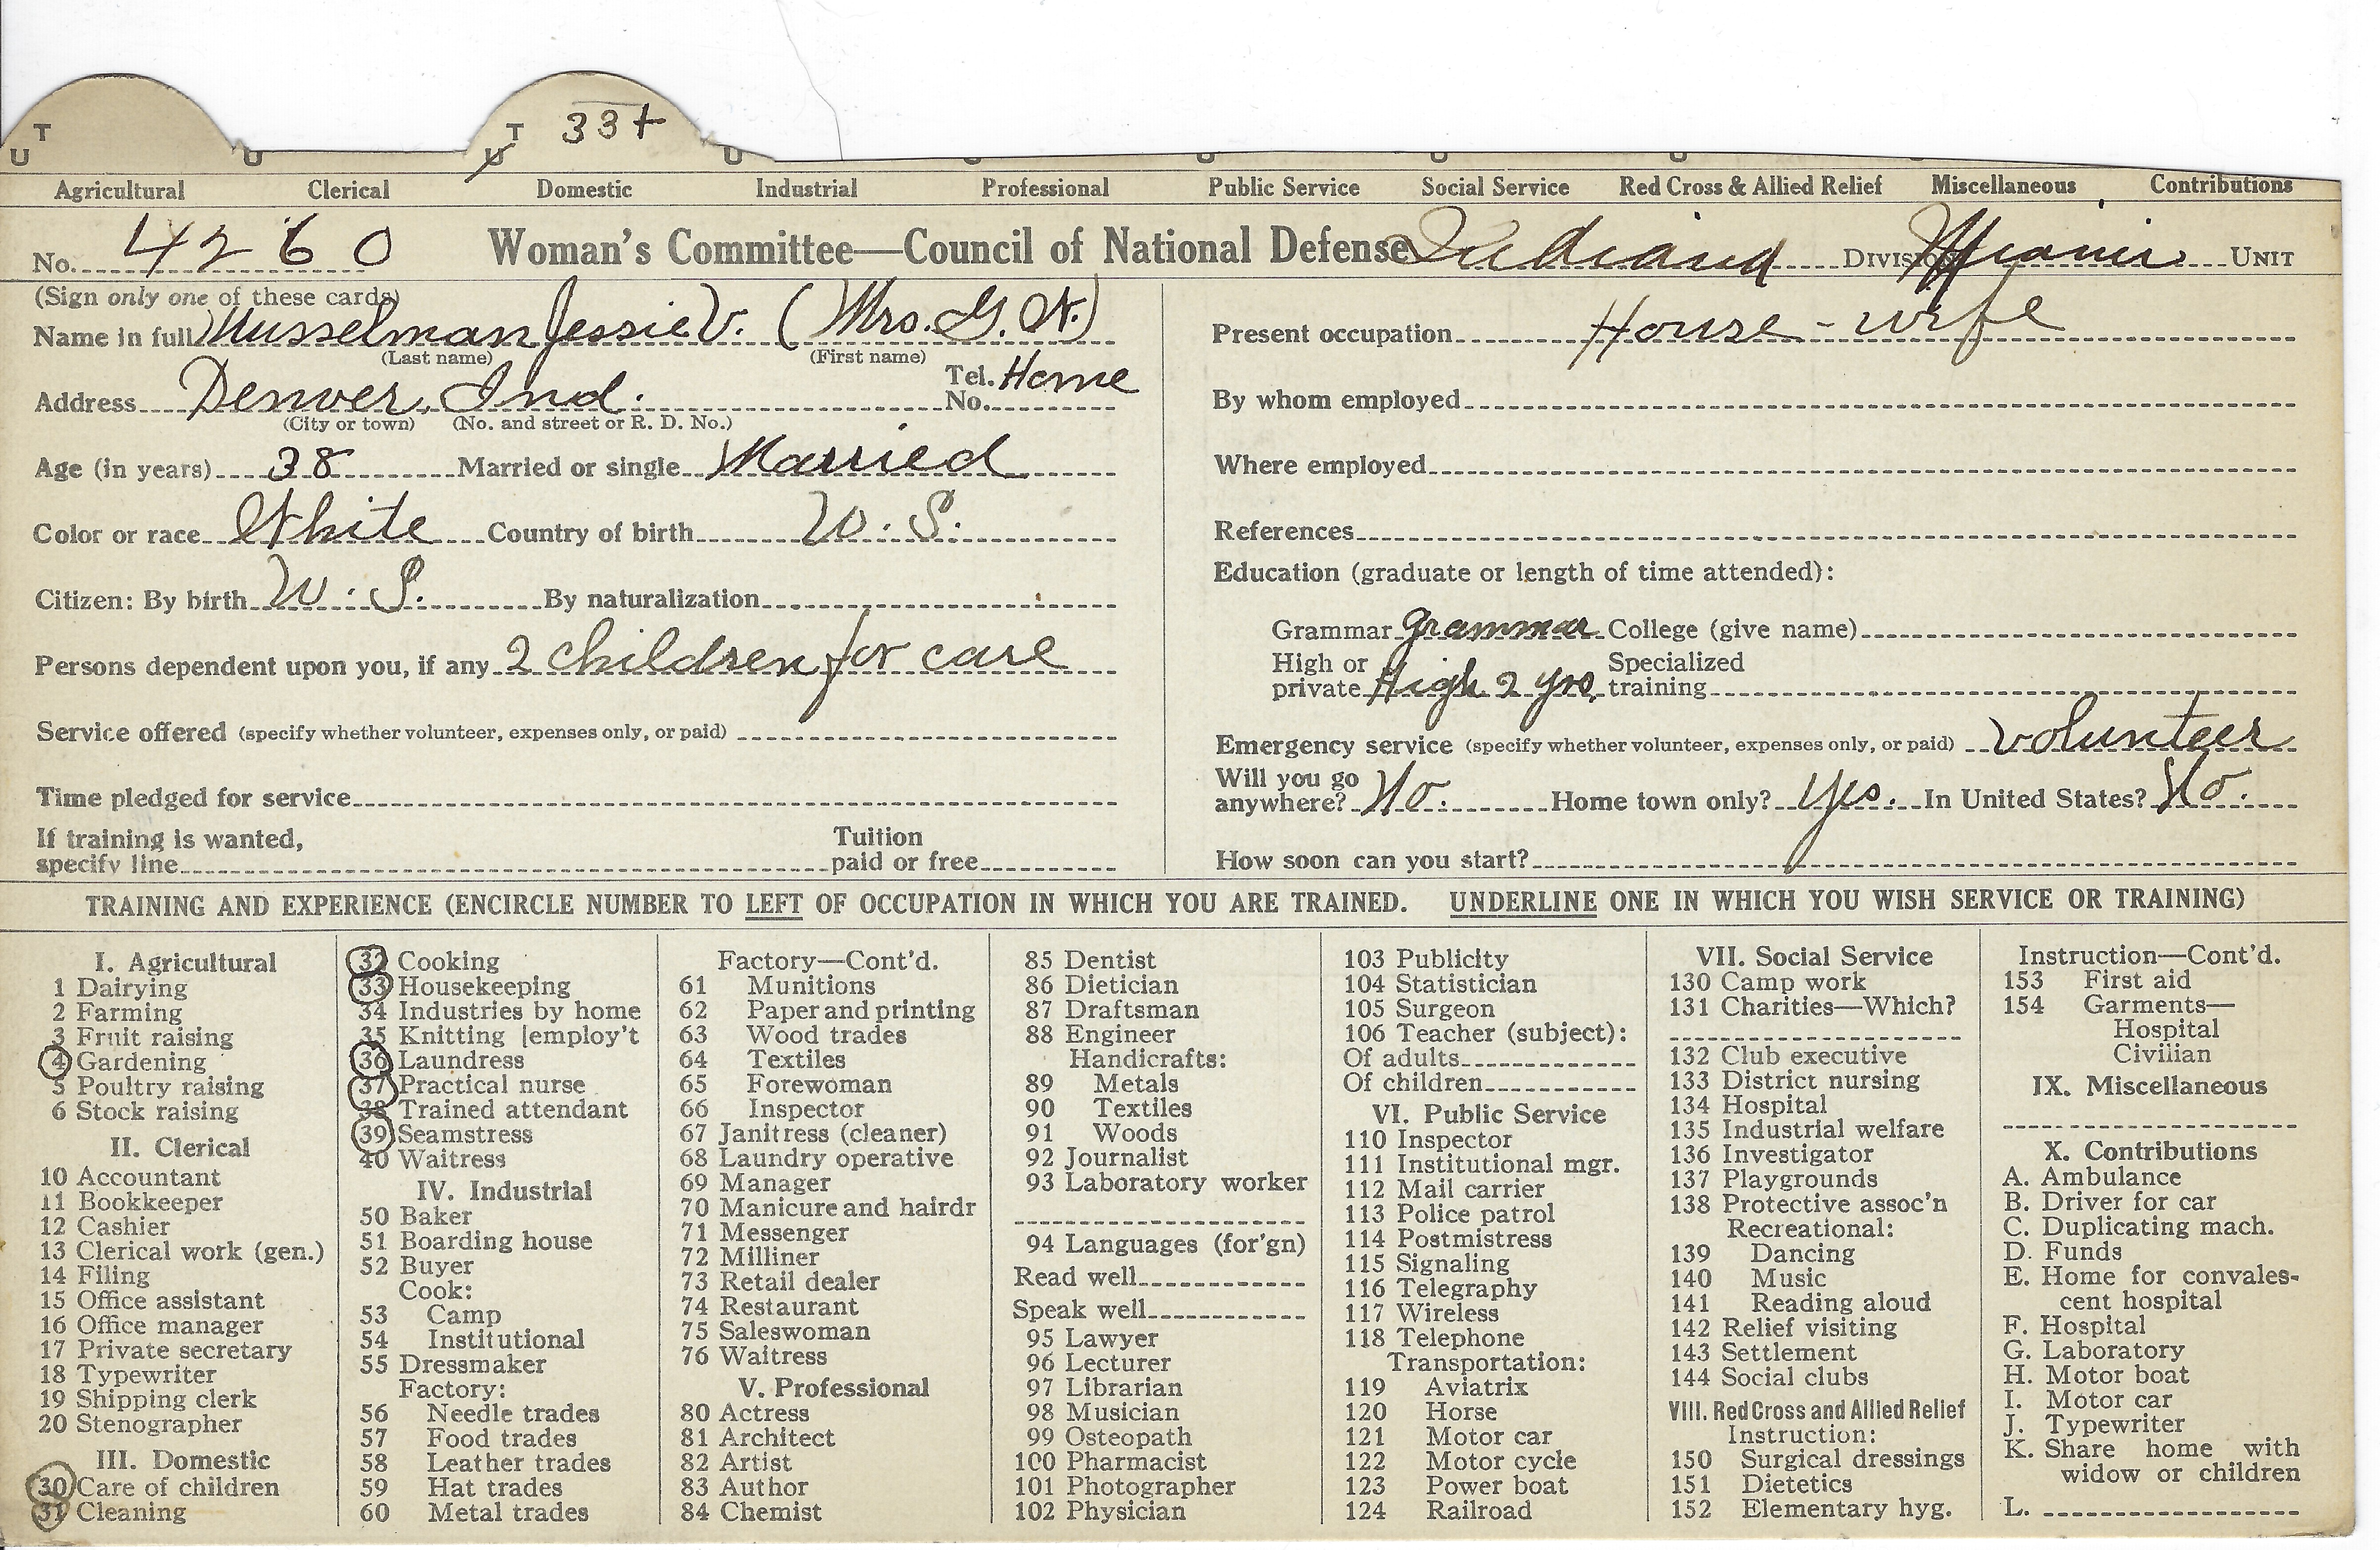 T T 33+
U U U U
Agricultural Clerical Domestic Industrial Professional Public Service Social Service Red Cross & Allied Relief Miscellaneous Contributions
No. 4260 Woman's Committee—Council of National Defense Indiana Division Miami Unit
(Sign only one of these cards)
Name in full Musselman Jessie V. (Mrs. G. N.)
(Last name) (First name)
Address Denver, Ind. Tel. No. Home
(City or town) (No. and street or R. D. No.)
Age (in years) 38 Married or single Married
Color or race White Country of birth U. S.
Citizen: By birth U. S. By naturalization
Persons dependent upon you, if any 2 children for care
Service offered (specify whether volunteer, expenses only, or paid)
Time pledged for service
If training is wanted,
specify line Tuition paid or free
Present occupation House-wife
By whom employed
Where employed
References
Education (graduate or length of time attended):
Grammar grammar College (give name)
High or private High 2 yrs. Specialized training
Emergency service (specify whether volunteer, expenses only, or paid) volunteer
Will you go anywhere? No. Home town only? Yes. In United States? No.
How soon can you start?
TRAINING AND EXPERIENCE (ENCIRCLE NUMBER TO LEFT OF OCCUPATION IN WHICH YOU ARE TRAINED. UNDERLINE ONE IN WHICH YOU WISH SERVICE OR TRAINING)
I. Agricultural
1 Dairying
2 Farming
3 Fruit raising
4 Gardening
5 Poultry raising
6 Stock raising
II. Clerical
10 Accountant
11 Bookkeeper
12 Cashier
13 Clerical work (gen.)
14 Filing
15 Office assistant
16 Office manager
17 Private secretary
18 Typewriter
19 Shipping clerk
20 Stenographer
III. Domestic
30 Care of children
31 Cleaning
32 Cooking
33 Housekeeping
34 Industries by home
35 Knitting [employ't
36 Laundress
37 Practical nurse
38 Trained attendant
39 Seamstress
40 Waitress
IV. Industrial
50 Baker
51 Boarding house
52 Buyer
Cook:
53 Camp
54 Institutional
55 Dressmaker
Factory:
56 Needle trades
57 Food trades
58 Leather trades
59 Hat trades
60 Metal trades
Factory—Cont'd.
61 Munitions
62 Paper and printing
63 Wood trades
64 Textiles
65 Forewoman
66 Inspector
67 Janitress (cleaner)
68 Laundry operative
69 Manager
70 Manicure and hairdr
71 Messenger
72 Milliner
73 Retail dealer
74 Restaurant
75 Saleswoman
76 Waitress
V. Professional
80 Actress
81 Architect
82 Artist
83 Author
84 Chemist
85 Dentist
86 Dietician
87 Draftsman
88 Engineer
Handicrafts:
89 Metals
90 Textiles
91 Woods
92 Journalist
93 Laboratory worker
94 Languages (for'gn)
Read well
Speak well
95 Lawyer
96 Lecturer
97 Librarian
98 Musician
99 Osteopath
100 Pharmacist
101 Photographer
102 Physician
103 Publicity
104 Statistician
105 Surgeon
106 Teacher (subject):
Of adults
Of children
VI. Public Service
110 Inspector
111 Institutional mgr.
112 Mail carrier
113 Police patrol
114 Postmistress
115 Signaling
116 Telegraphy
117 Wireless
118 Telephone
Transportation:
119 Aviatrix
120 Horse
121 Motor car
122 Motor cycle
123 Power boat
124 Railroad
VII. Social Service
130 Camp work
131 Charities—Which?
132 Club executive
133 District nursing
134 Hospital
135 Industrial welfare
136 Investigator
137 Playgrounds
138 Protective assoc'n
Recreational:
139 Dancing
140 Music
141 Reading aloud
142 Relief visiting
143 Settlement
144 Social clubs
VIII. Red Cross and Allied Relief
Instruction:
150 Surgical dressings
151 Dietetics
152 Elementary hyg.
Instruction—Cont'd.
153 First aid
154 Garments—
Hospital
Civilian
IX. Miscellaneous
X. Contributions
A. Ambulance
B. Driver for car
C. Duplicating mach.
D. Funds
E. Home for convales-
cent hospital
F. Hospital
G. Laboratory
H. Motor boat
I. Motor car
J. Typewriter
K. Share home with
widow or children
L.